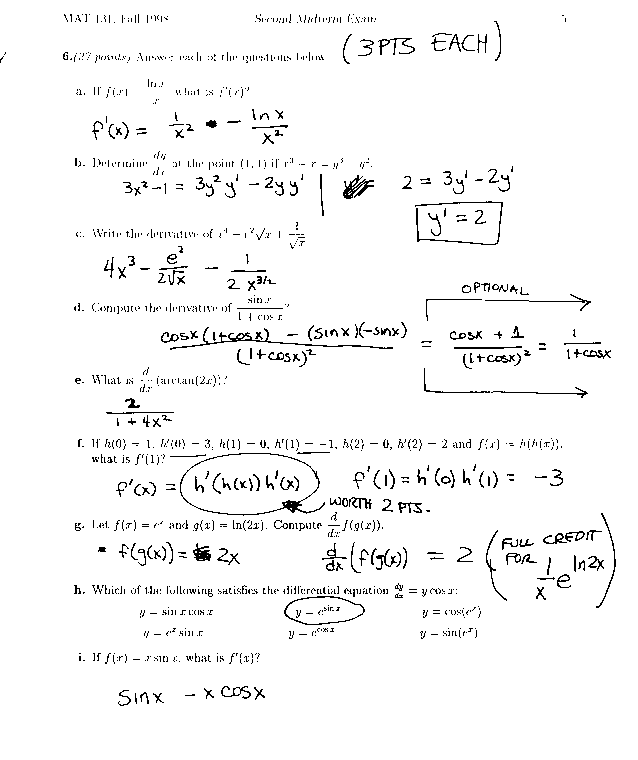 MAT 131, Fall 1998 Second Midterm Exam 5
6.(27 points) Answer each of the questions below (3 PTS EACH)
a. If f(x) = ln x / x what is f'(x)?
f'(x) = 1/x² - ln x/x²
b. Determine dy/dx at the point (1,1) if x³ - x = y³ - y².
3x² - 1 = 3y² y' - 2y y' | 2 = 3y' - 2y'
y' = 2
c. Write the derivative of x⁴ - e²√x + 1/√x
4x³ - e²/2√x - 1/2 x^3/2
d. Compute the derivative of sin x/1 + cos x?
OPTIONAL
cosx(1+cosx) - (sinx)(-sinx)/(1+cosx)² = cosx + 1/(1+cosx)² = 1/1+cosx
e. What is d/dx (arctan(2x))?
2/1 + 4x²
f. If h(0) = 1, h'(0) = 3, h(1) = 0, h'(1) = -1, h(2) = 0, h'(2) = 2 and f(x) = h(h(x)),
what is f'(1)?
f'(x) = h'(h(x)) h'(x) f'(1) = h'(0) h'(1) = -3
WORTH 2 PTS.
g. Let f(x) = eˣ and g(x) = ln(2x). Compute d/dx f(g(x)).
f(g(x)) = 2x d/dx (f(g(x)) = 2 (FULL CREDIT FOR 1/x e^ln2x)
h. Which of the following satisfies the differential equation dy/dx = y cos x:
y = sin x cos x y = e^sin x y = cos(eˣ)
y = eˣ sin x y = e^cos x y = sin(eˣ)
i. If f(x) = x sin x, what is f'(x)?
sinx - x cosx